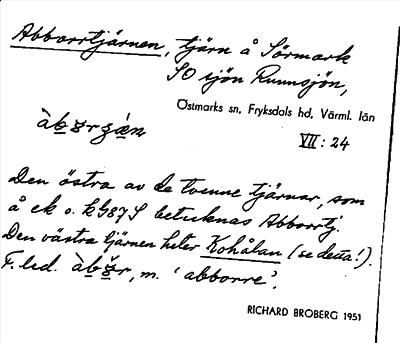 Abborrtjärnen, tjärn å Sörmark
SO sjön Runnsjön,
Östmarks sn, Fryksdals hd, Värml. län
VII: 24
Den östra av de tvenne tjärnar, som
å ek o. k 987 S betecknas Abborrtj.
Den västra tjärnen heter Kohålan (se detta!).
F. led. m. 'abborre'.
RICHARD BROBERG 1951